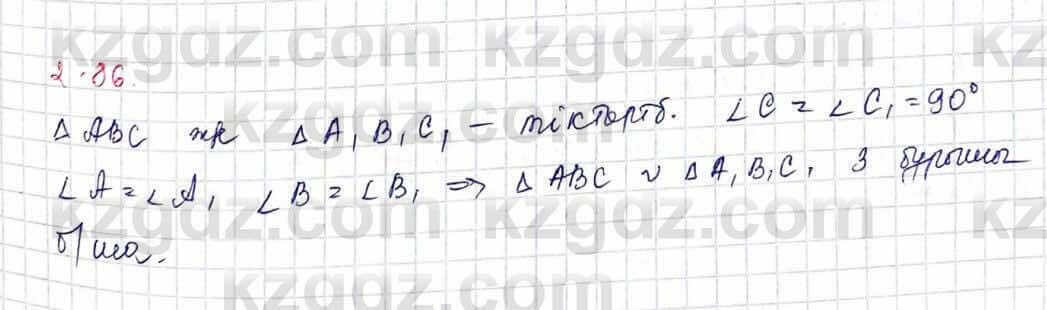 kzgdz.com kzgdz.com kz
2.86.
Δ ABC жк Δ A₁B₁C₁ – тіктөртб. ∠C = ∠C₁ = 90°
∠A = ∠A₁ ∠B = ∠B₁ ⇒ Δ ABC ∾ Δ A₁B₁C₁ 3 бұрышы
б/ша.
kzgdz.com kzgdz.com kz
kzgdz.com